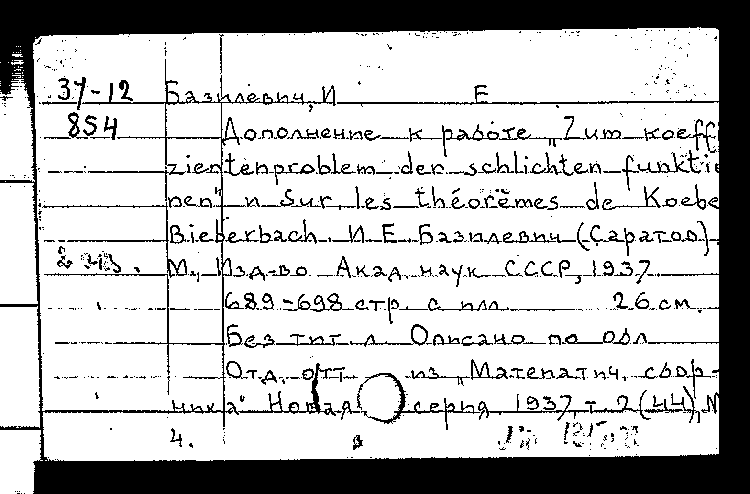 37-12 Базилевич, И Е
854 Дополнение к работе „Zum koeffi
zientenproblem der schlichten funktio
nen" и Sur les théorèmes de Koebe
Bieberbach. И. Е. Базилевич (Саратов).
2 экз. М., Изд-во Акад. наук СССР, 1937
689-698 стр. с илл 26 см.
Без тит. л. Описано по обл
Отд. отт из „Математич. сбор-
ника" Новая серия, 1937, т. 2 (44), N
4.